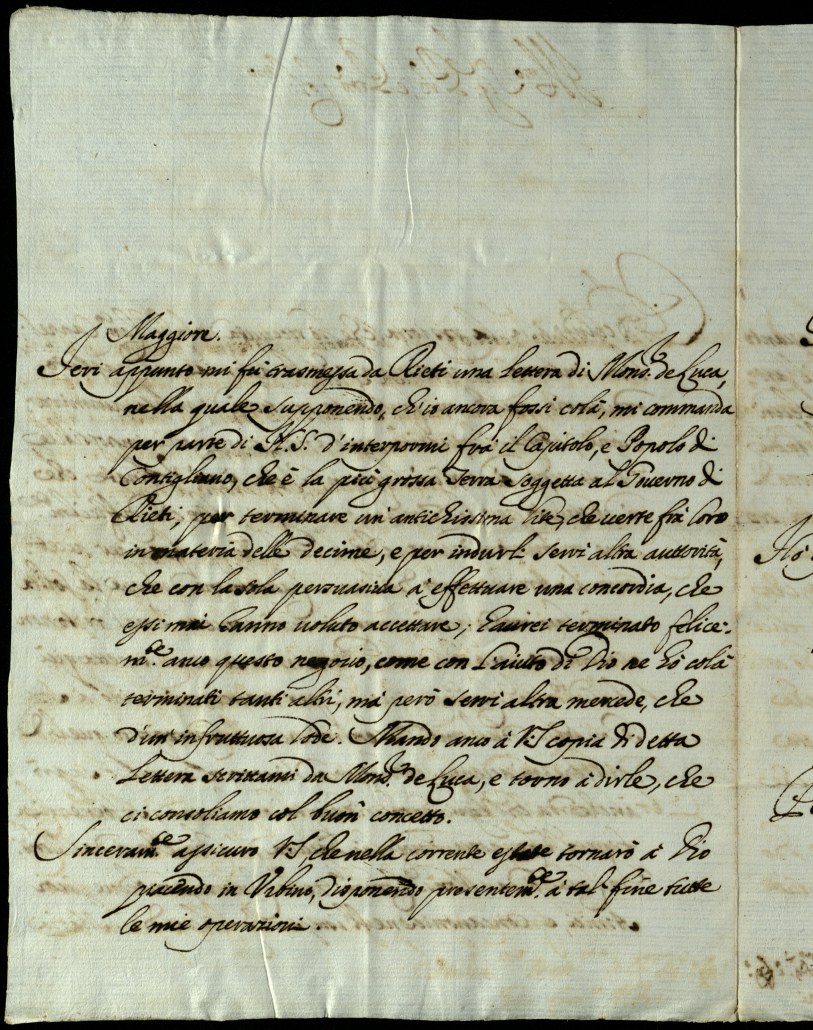 Maggiore.
Ieri appunto mi fù trasmessa da Rieti una lettera di Mons.r de Luca,
nella quale supponendo, ch'io ancora fossi colà, mi commanda
per parte di N.S. d'interpormi frà il Capitolo, e Popolo di
Contigliano, che è la più grossa Terra soggetta al Governo di
Rieti, per terminare un'antichissima lite, che verte frà loro
in materia delle decime, e per indurli senz'altra auttorità,
che con la sola persuasiva à effettuare una concordia, che
essi mai hanno voluto accettare; haurei terminato felice-
m.te anco questo negozio, come con l'aiuto di Dio ne hò colà
terminati tanti altri, mà però senz'altra mercede, che
d'un'infruttuosa lode. Mando anco à V.S. copia di detta
lettera scrittami da Mons.r de Luca, e torno à dirle, che
ci consoliamo col buon concetto.
Sinceram.te assicuro V.S., che nella corrente estate tornarò à Dio
piacendo in Urbino, disponendo presentem.te à tal fine tutte
le mie operazioni.